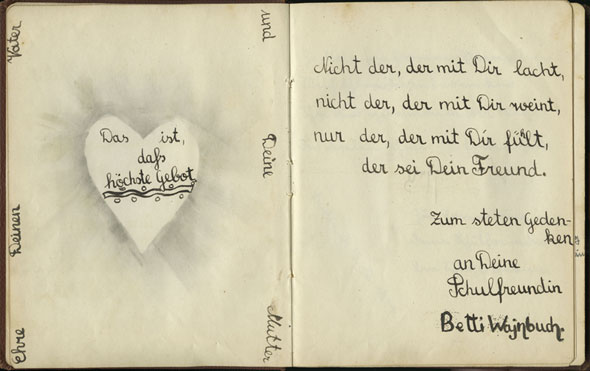 Ehre Deinen Vater
und Deine Mutter
Das ist,
daſs
höchste Gebot
Nicht der, der mit Dir lacht,
nicht der, der mit Dir weint,
nur der, der mit Dir fühlt,
der sei Dein Freund.
Zum steten Geden-
ken
an Deine
Schulfreundin
Betti Wajnbuch.